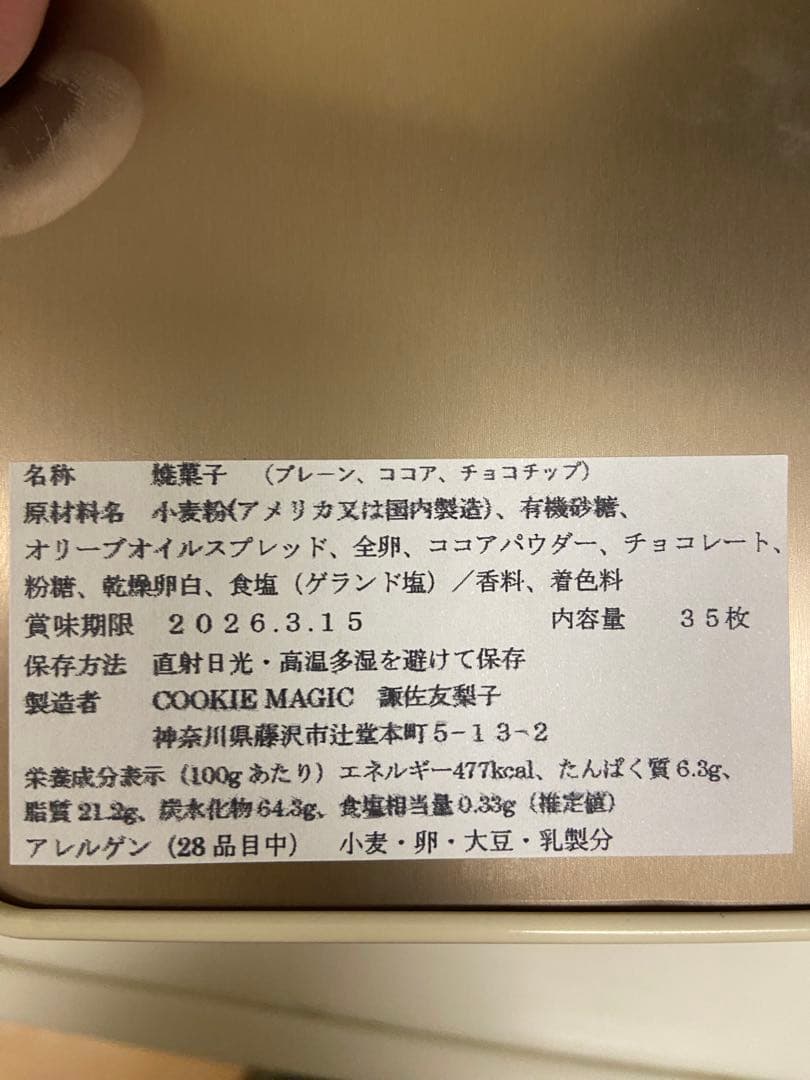 名称　焼菓子　（プレーン、ココア、チョコチップ）
原材料名　小麦粉(アメリカ又は国内製造)、有機砂糖、
オリーブオイルスプレッド、全卵、ココアパウダー、チョコレート、
粉糖、乾燥卵白、食塩（ゲランド塩）／香料、着色料
賞味期限　２０２６.３.１５　内容量　３５枚
保存方法　直射日光・高温多湿を避けて保存
製造者　COOKIE MAGIC　諏佐友梨子
神奈川県藤沢市辻堂本町５-１３-２
栄養成分表示（100gあたり）エネルギー477kcal、たんぱく質6.3g、
脂質21.2g、炭水化物64.3g、食塩相当量0.33g（推定値）
アレルゲン（28品目中）　小麦・卵・大豆・乳製分